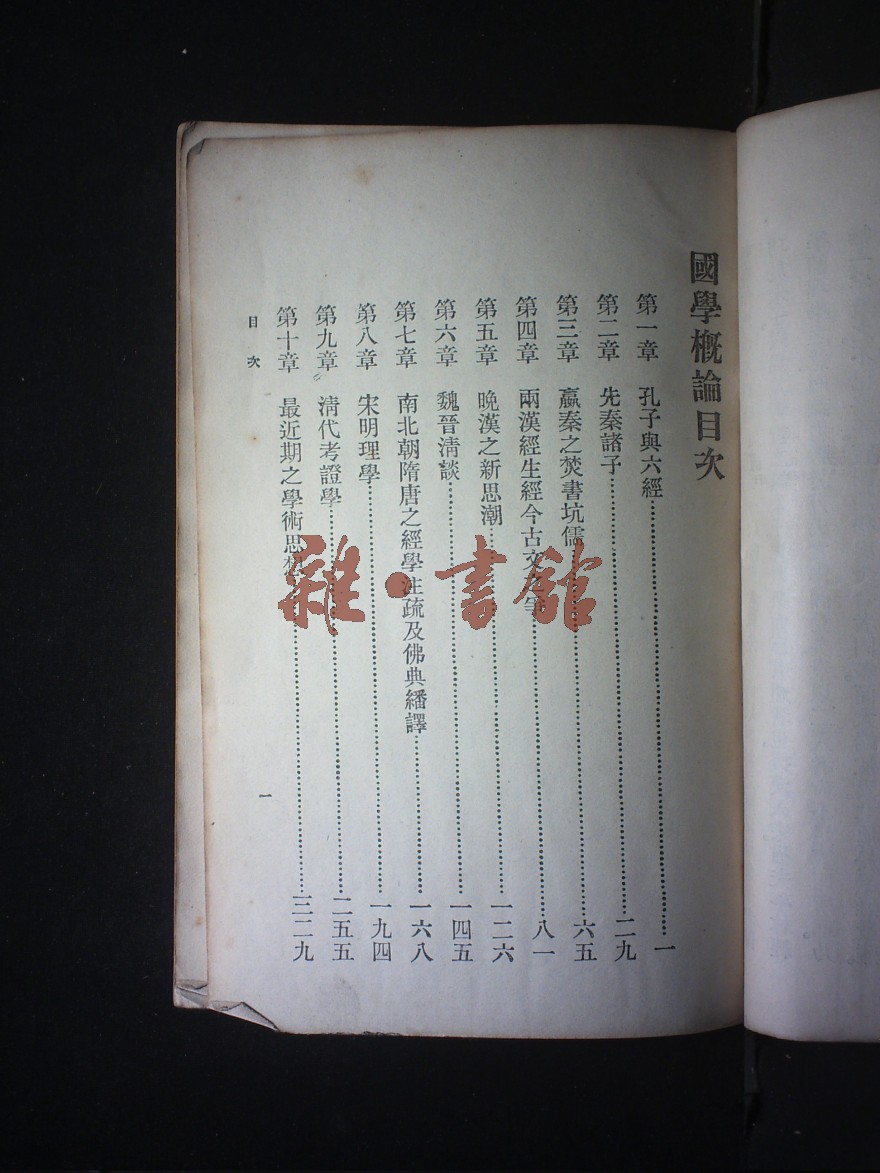 國學概論目次
第一章 孔子與六經……一
第二章 先秦諸子……二九
第三章 嬴秦之焚書坑儒……六五
第四章 兩漢經生經今古文之爭……八一
第五章 晚漢之新思潮……一二六
第六章 魏晉清談……一四五
第七章 南北朝隋唐之經學注疏及佛典繙譯……一六八
第八章 宋明理學……一九四
第九章 清代考證學……二五五
第十章 最近期之學術思想……三二九
目次
一
雜·書館